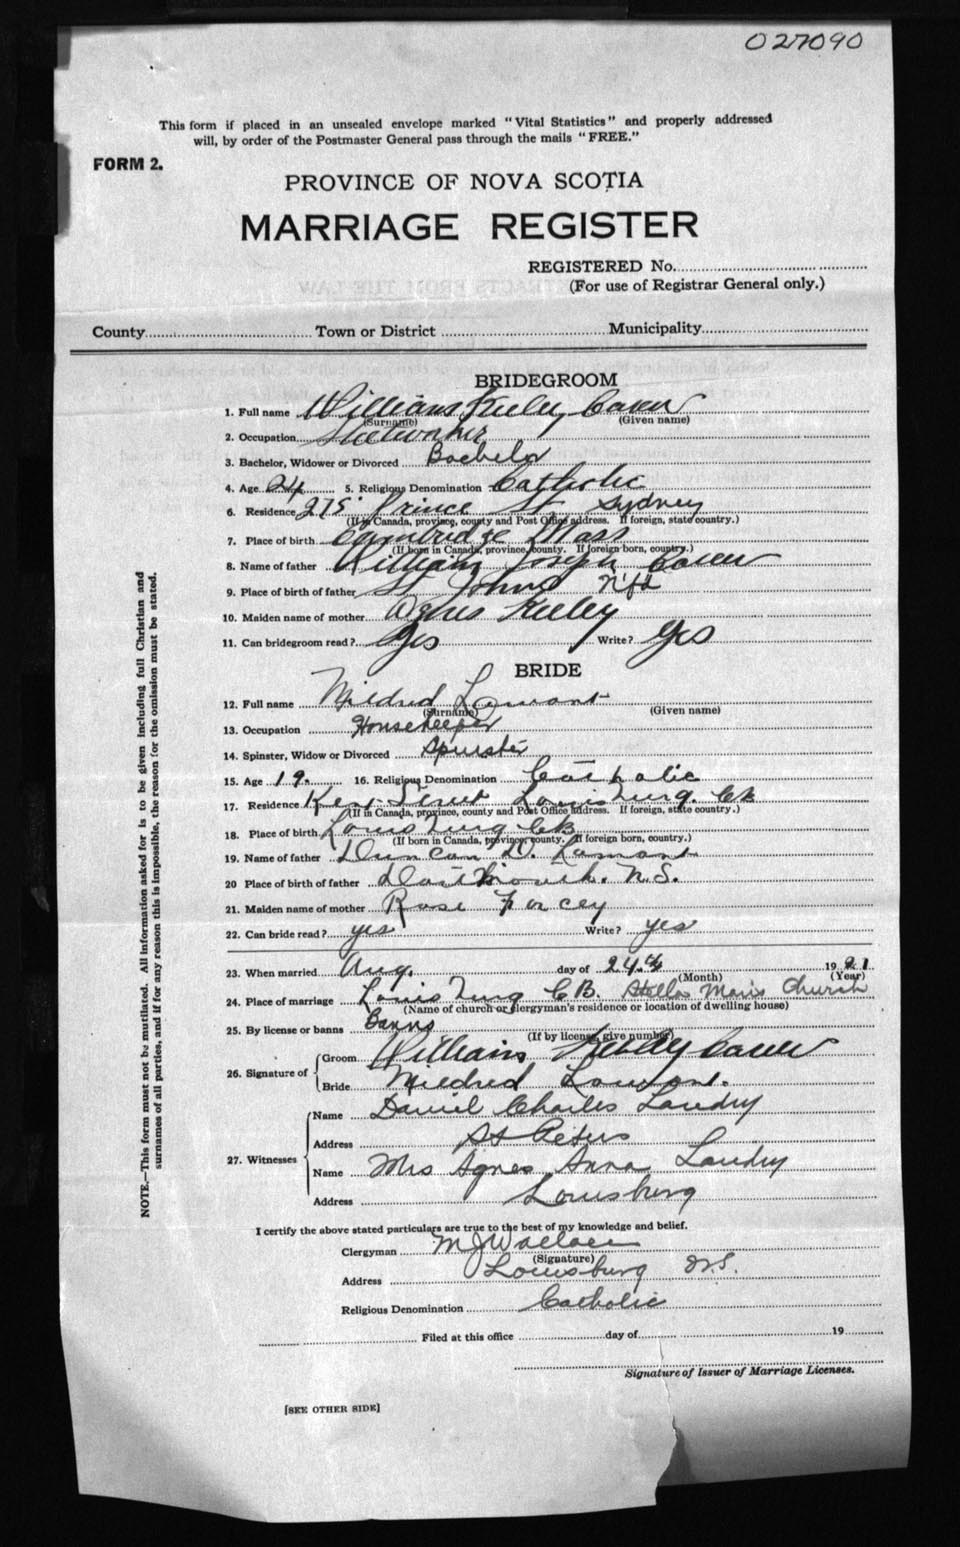 027090
This form if placed in an unsealed envelope marked "Vital Statistics" and properly addressed
will, by order of the Postmaster General pass through the mails "FREE."
FORM 2.
PROVINCE OF NOVA SCOTIA
MARRIAGE REGISTER
REGISTERED No.
(For use of Registrar General only.)
County Town or District Municipality
BRIDEGROOM
1. Full name William
(Surname) (Given name)
2. Occupation
3. Bachelor, Widower or Divorced Bachelor
4. Age 24 5. Religious Denomination Catholic
6. Residence 275 Prince St Sydney
(If in Canada, province, county and Post Office address. If foreign, state country.)
7. Place of birth Cambridge Mass
(If born in Canada, province, county. If foreign born, country.)
8. Name of father William Joseph
9. Place of birth of father St Johns Nfld
10. Maiden name of mother Keeley
11. Can bridegroom read? Yes Write? Yes
BRIDE
12. Full name Mildred Lamont
(Surname) (Given name)
13. Occupation Housekeeper
14. Spinster, Widow or Divorced Spinster
15. Age 19. 16. Religious Denomination Catholic
17. Residence Street Louisburg. CB
(If in Canada, province, county and Post Office address. If foreign, state country.)
18. Place of birth Louisburg CB
(If born in Canada, province, county. If foreign born, country.)
19. Name of father Duncan D. Lamont
20 Place of birth of father N.S.
21. Maiden name of mother Rose Forcey
22. Can bride read? yes Write? yes
23. When married Aug. day of 24th 1921
(Month) (Year)
24. Place of marriage Louisburg CB. Stella Maris Church
(Name of church or clergyman's residence or location of dwelling house)
25. By license or banns Banns
(If by license, give number)
26. Signature of
Groom William
Bride Mildred Lamont.
27. Witnesses
Name Daniel Charles Landry
Address St Peters
Name Mrs Agnes Anna Landry
Address Louisburg
I certify the above stated particulars are true to the best of my knowledge and belief.
Clergyman M J Wallace
(Signature)
Address Louisburg N.S.
Religious Denomination Catholic
Filed at this office day of 19
Signature of Issuer of Marriage Licenses.
[SEE OTHER SIDE]
NOTE.—This form must not be mutilated. All information asked for is to be given including full Christian and
surnames of all parties, and if for any reason this is impossible, the reason for the omission must be stated.